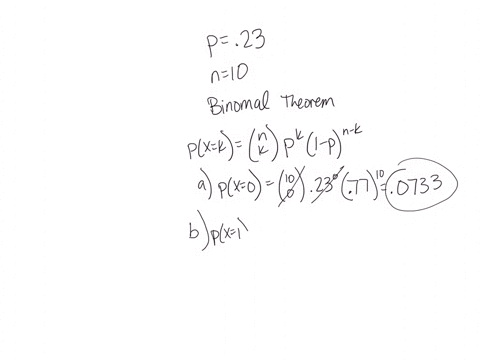 p=.23
n=10
Binomal Theorem
p(x=k)=(n k) p^k (1-p)^n-k
a) p(x=0)=(10 0) .23^0 (.77)^10=.0733
b) p(x=1)